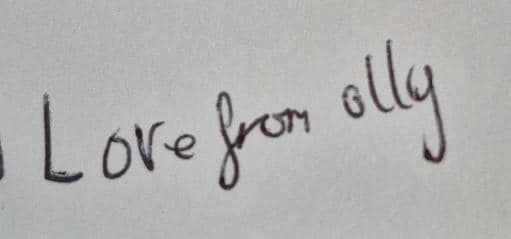 Love from olly